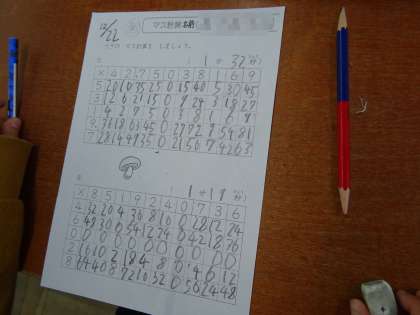 12/22
マス計算
1分32
× 4 2 7 5 0 3 8 1 6 9
5 20 10 35 25 0 15 40 5 30 45
3 12 6 21 15 0 9 24 3 18 27
1 4 2 7 5 0 3 8 1 6 9
9 36 18 63 45 0 27 72 9 54 81
7 28 14 49 35 0 21 56 7 42 63
× 8 5 1 9 2 4 0 7 3 6
4 32 20 4 36 8 16 0 28 12 24
6 48 30 6 54 12 24 0 42 18 36
0 0 0 0 0 0 0 0 0 0 0
2 16 10 2 18 4 8 0 6 12
8 64 40 8 72 16 32 0 56 24 48